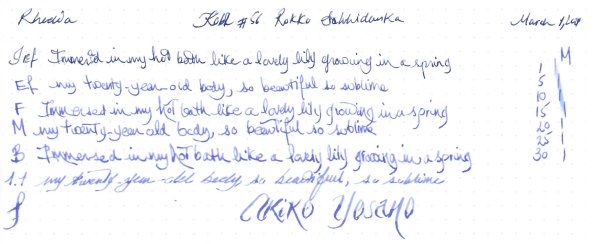 Rhodia Kobe #56 Rokko March 1,
JEf Immersed in my hot bath like a lovely lily growing in a spring M
1
Ef my twenty-year-old body, so beautiful so sublime 5
10
F Immersed in my hot bath like a lovely lily growing in a spring 15
M my twenty-year-old body, so beautiful so sublime 20
25
B Immersed in my hot bath like a lovely lily growing in a spring 30
1.1 my twenty-year-old body, so beautiful, so sublime
f Akiko Yosano